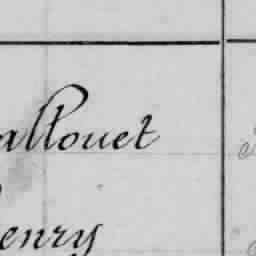 allouet
enry